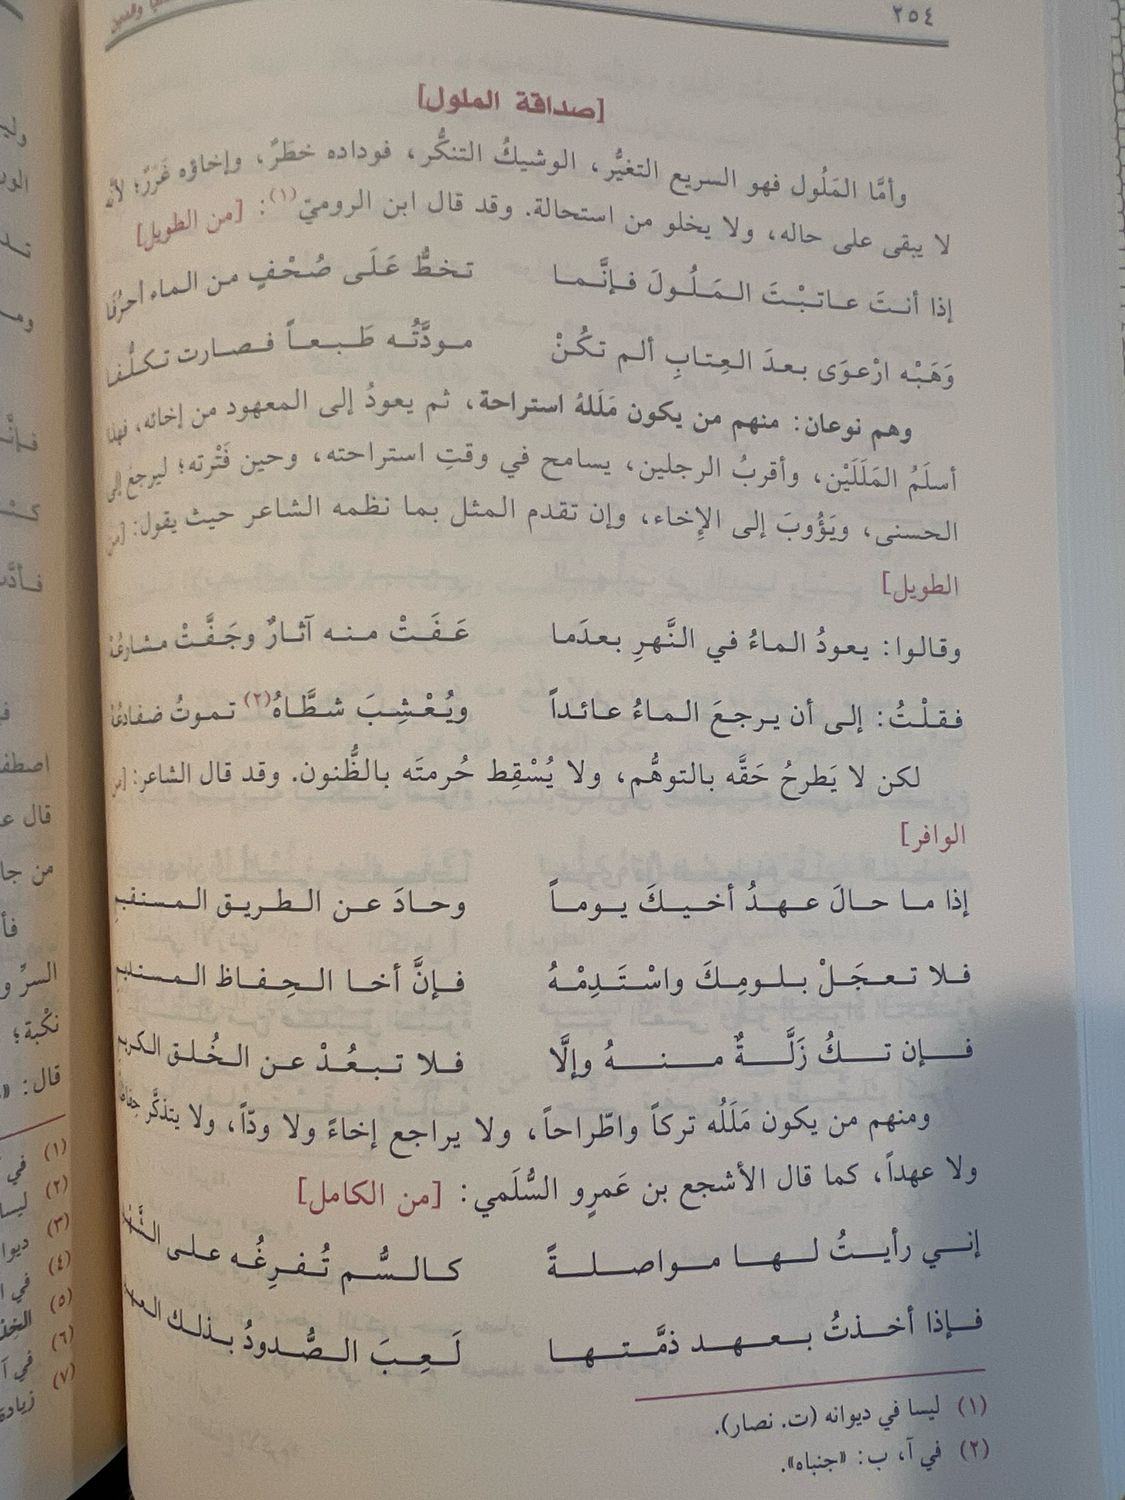 ٢٥٤
والدين
[صداقة الملول]
وأمَّا المَلُول فهو السريع التغيُّر، الوشيكُ التنكُّر، فوداده خطَرٌ، وإخاؤه غَرَرٌ؛ لأنَّه
لا يبقى على حاله، ولا يخلو من استحالة. وقد قال ابن الروميّ(١): [من الطويل]
إذا أنتَ عاتبْتَ المَلُولَ فإنَّما تخطُّ عَلَى صُحْفٍ من الماء أحرُفَا
وَهَبْه ارْعوَى بعدَ العِتابِ ألم تكُنْ مودَّتُه طَبعاً فصارت تكلُّفا
وهم نوعان: منهم من يكون مَلَلهُ استراحة، ثم يعودُ إلى المعهود من إخائه، فهذا
أسلَمُ المَلَلَيْن، وأقربُ الرجلين، يسامح في وقتِ استراحته، وحين فَتْرته؛ ليرجعَ إلى
الحسنى، ويَؤُوبَ إلى الإخاء، وإن تقدم المثل بما نظمه الشاعر حيث يقول: [من
الطويل]
وقالوا: يعودُ الماءُ في النَّهرِ بعدَما عَفَتْ منه آثارٌ وجَفَّتْ مشارعُهْ
فقلْتُ: إلى أن يرجعَ الماءُ عائداً ويُعْشِبَ شطَّاهُ(٢) تموتُ ضفادعُهْ
لكن لا يَطرحُ حَقَّه بالتوهُّم، ولا يُسْقِط حُرمتَه بالظُّنون. وقد قال الشاعر: [من
الوافر]
إذا ما حالَ عهدُ أخيكَ يوماً وحادَ عن الطريق المستقيمِ
فلا تعجَلْ بلومِكَ واسْتَدِمْهُ فإنَّ أخا الحِفاظ المستديمِ
فإن تكُ زَلَّةٌ منهُ وإلَّا فلا تبعُدْ عن الخُلق الكريمِ
ومنهم من يكون مَلَلُه تركاً واطّراحاً، ولا يراجع إخاءً ولا ودّاً، ولا يتذكَّر حِفاظاً
ولا عهداً، كما قال الأشجع بن عَمرٍو السُّلَمي: [من الكامل]
إني رأيتُ لها مواصلةً كالسُّم تُفرِغُه على الشَّهْدِ
فإذا أخذتُ بعهد ذمَّتها لَعِبَ الصُّدودُ بذلك العهدِ
(١) ليسا في ديوانه (ت. نصار).
(٢) في آ، ب: «جنباه».